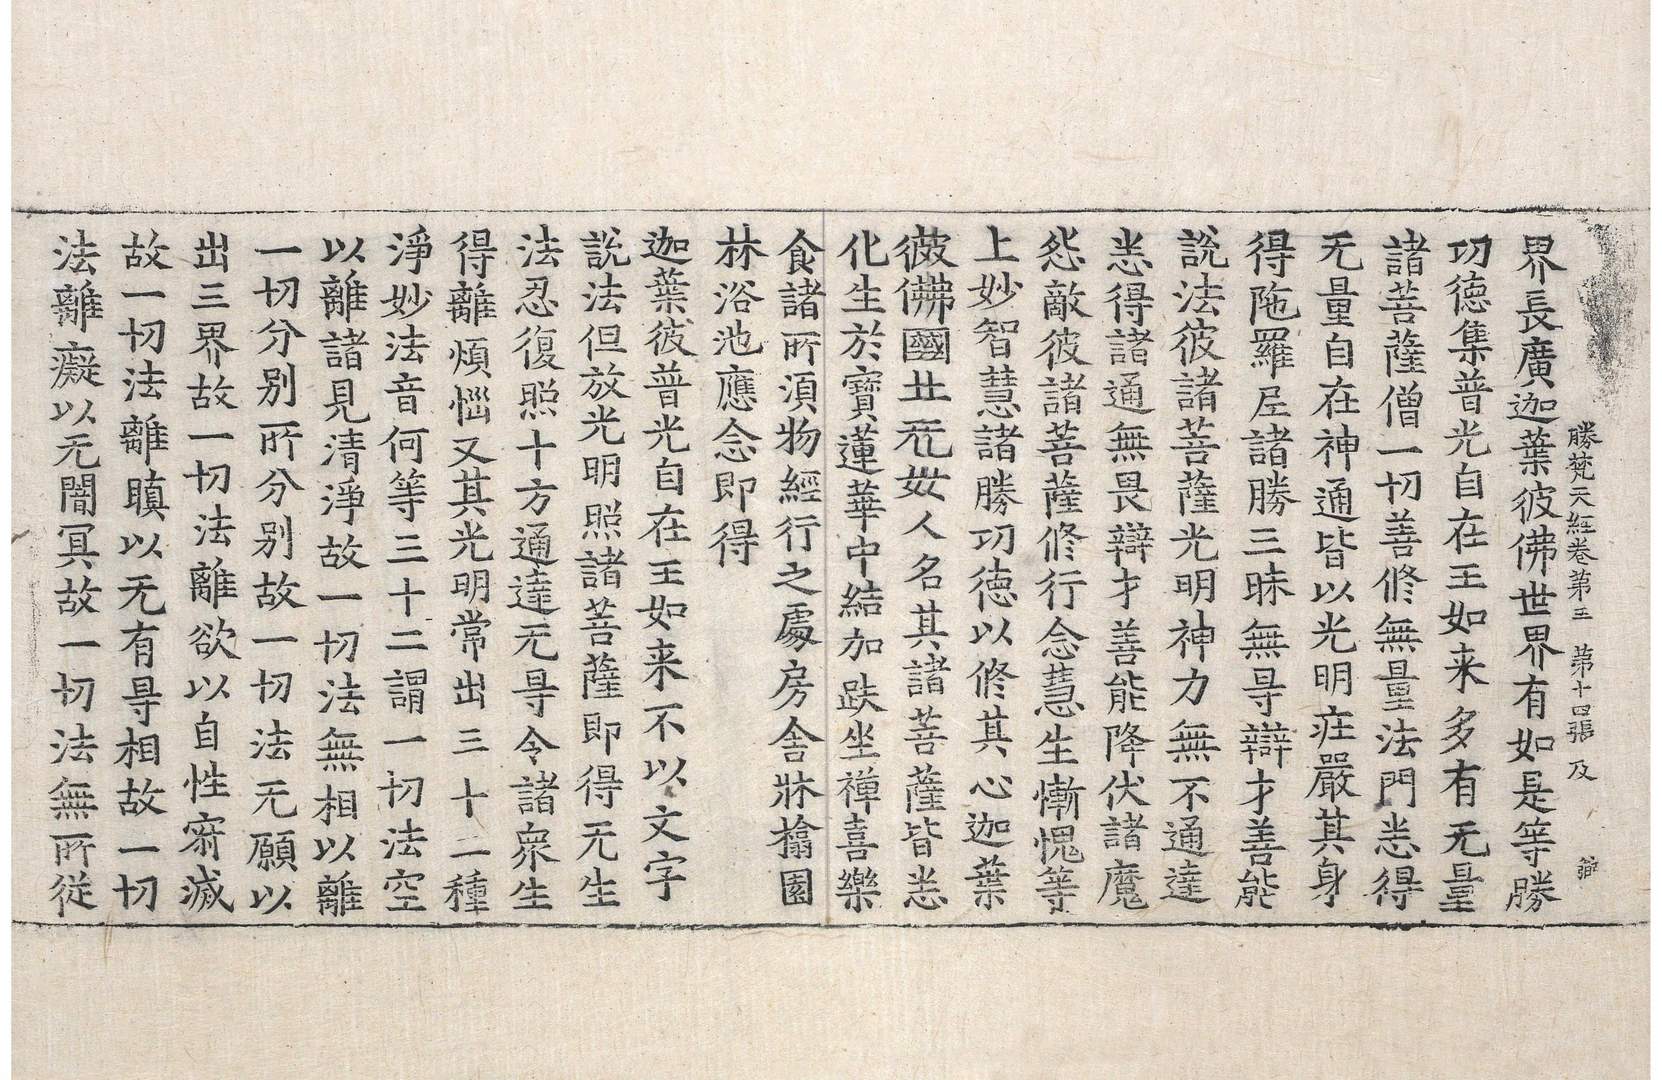 勝梵天經卷第五 第十四張 及
界長廣迦葉彼佛世界有如是等勝
功德集普光自在王如来多有无量
諸菩薩僧一切善修無量法門悉得
无量自在神通皆以光明庄嚴其身
得陁羅尼諸勝三昧無㝵辯才善能
說法彼諸菩薩光明神力無不通達
悉得諸通無畏辯才善能降伏諸魔
怨敵彼諸菩薩修行念慧生慚愧等
上妙智慧諸勝功德以修其心迦葉
彼佛國土无女人名其諸菩薩皆悉
化生於寶蓮華中結加趺坐禪喜樂
食諸所須物經行之處房舍牀𣙁園
林浴池應念即得
迦葉彼普光自在王如来不以文字
說法但放光明照諸菩薩即得无生
法忍復照十方通達无㝵令諸衆生
得離煩惱又其光明常出三十二種
淨妙法音何等三十二謂一切法空
以離諸見清淨故一切法無相以離
一切分别所分别故一切法无願以
出三界故一切法離欲以自性寂滅
故一切法離瞋以无有㝵相故一切
法離癡以无闇冥故一切法無所従